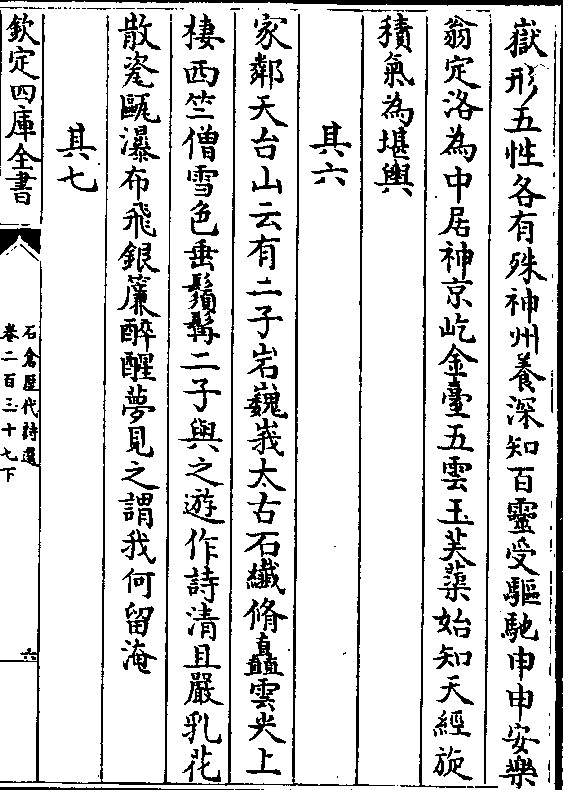 嶽形五性各有殊神州養深知百靈受驅馳申申安樂
翁定洛為中居神京屹金臺五雲玉芙蕖始知天經旋
積氣為堪輿
其六
家鄰天台山云有二子岩巍峩太古石纖脩矗雲尖上
棲西竺僧雪色垂鬚髯二子與之遊作詩清且嚴乳花
散瓷甌瀑布飛銀簾醉醒夢見之謂我何留淹
其七
欽定四庫全書
石倉歷代詩選
卷二百三十七下
六